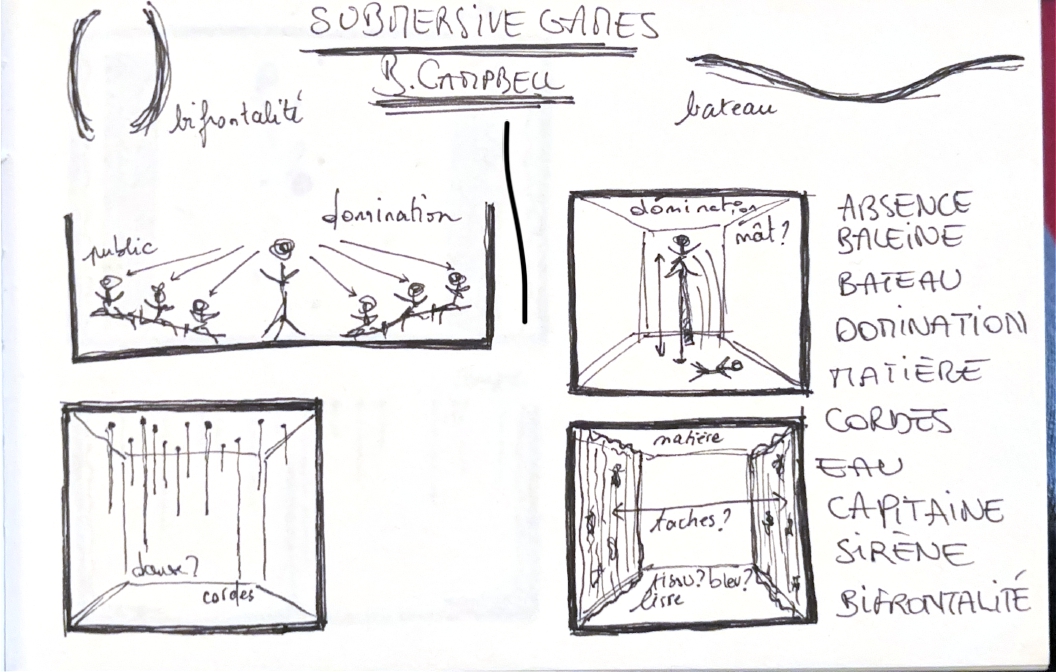 SUBMERSIVE GAMES
B. CAMPBELL
bifrontalité
bateau
domination
public
domination
mât?
danse?
cordes
matière
taches?
tissu? bleu?
lisse
ABSENCE
BALEINE
BATEAU
DOMINATION
MATIÈRE
CORDES
EAU
CAPITAINE
SIRÈNE
BIFRONTALITÉ